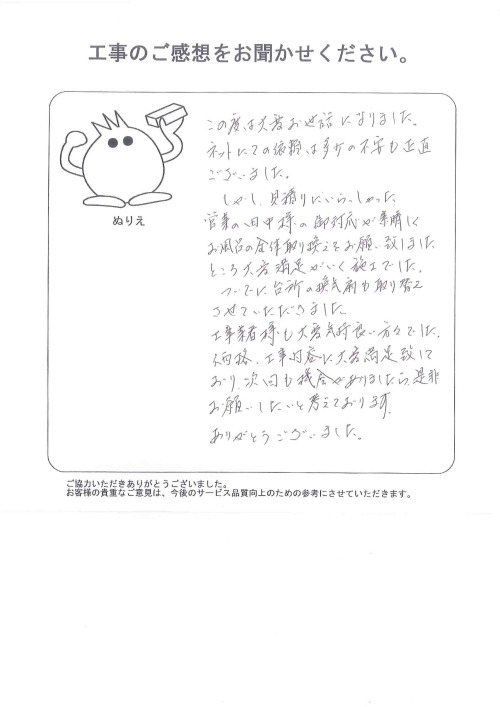 工事のご感想をお聞かせください。
この度は大変お世話になりました。
ネットにての依頼は多少の不安も正直
ございました。
しかし、見積りにいらっしゃった
営業の田中様の御対応が素晴しく
お風呂の全体取り換えをお願い致しました
ところ大変満足がいく施工でした。
ついでに台所の換気扇も取り替え
させていただきました。
工事業者様も大変気持良い方々でした。
価格、工事内容に大変満足致して
おり、次回も機会がありましたら、是非
お願いしたいと考えております。
ありがとうございました。
ぬりえ
ご協力いただきありがとうございました。
お客様の貴重なご意見は、今後のサービス品質向上のための参考にさせていただきます。